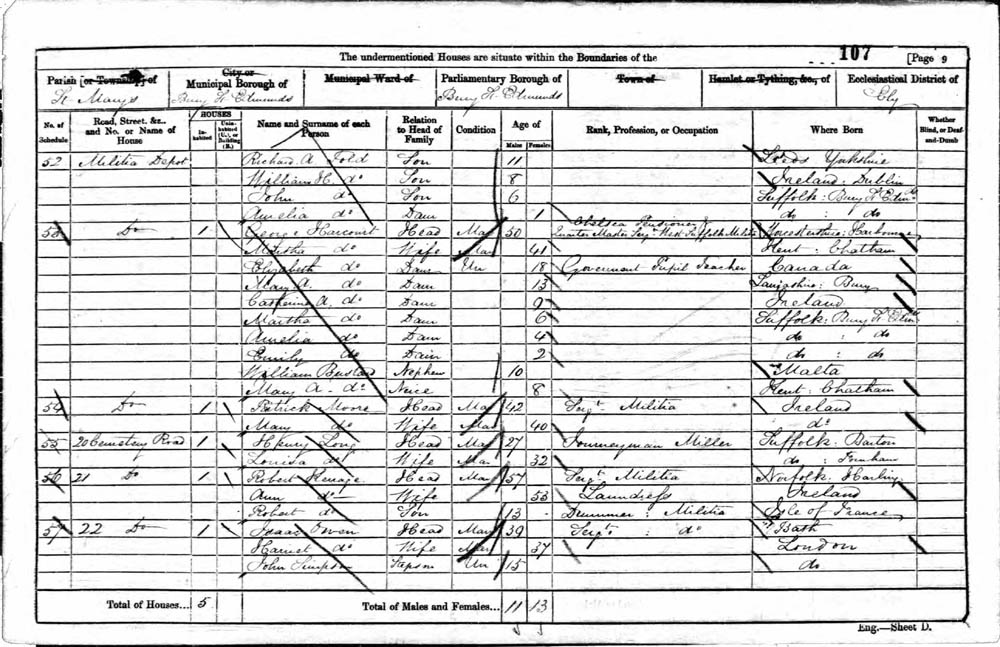 The undermentioned Houses are situate within the Boundaries of the
107
[Page 9
Parish [or Township] of
St Marys
City or
Municipal Borough of
Bury St Edmunds
Municipal Ward of
Parliamentary Borough of
Bury St Edmunds
Town of
Hamlet or Tything, &c., of
Ecclesiastical District of
Ely
No. of Schedule
Road, Street, &c., and No. or Name of House
HOUSES
Inhabited
Uninhabited (U.), or Building (B.)
Name and Surname of each Person
Relation to Head of Family
Condition
Age of
Males
Females
Rank, Profession, or Occupation
Where Born
Whether Blind, or Deaf-and-Dumb
52 Militia Depot Richard A Fold Son 11 Leeds Yorkshire
William H. do Son 8 Ireland: Dublin
John do Son 6 Suffolk: Bury St Edm
Amelia do Daur 1 do : do
53 Do 1 George Harcourt Head Mar 50 Chelsea Pensioner & Quarter Master Sergt West Suffolk Militia Worcestershire: Harborne
Martha do Wife Mar 41 Kent: Chatham
Elizabeth do Daur Un 18 Government Pupil Teacher Canada
Mary A. do Daur 13 Lancashire: Bury
Catherine A. do Daur 9 Ireland
Martha do Daur 6 Suffolk: Bury St Edm
Amelia do Daur 4 do do
Emily do Daur 2 do : do
William Bustard Nephew 10 Malta
Mary A do Neice 8 Kent: Chatham
54 Do 1 Patrick Moore Head Mar 42 Sergt Militia Ireland
Mary do Wife Mar 40 do
55 20 Cemetery Road 1 Henry Long Head Mar 27 Journeyman Miller Suffolk: Barton
Louisa do Wife Mar 32 do : Fornham
56 21 Do 1 Robert Kenage Head Mar 57 Sergt Militia Norfolk: Harling
Ann do Wife 53 Laundress Ireland
Robert do Son 13 Drummer: Militia Isle of France
57 22 Do 1 Isaac Owen Head Mar 39 Sergt : do Bath
Harriet do Wife Mar 37 London
John Simpson Stepson Un 15 do
Total of Houses... 5
Total of Males and Females... 11 13
Eng.—Sheet D.